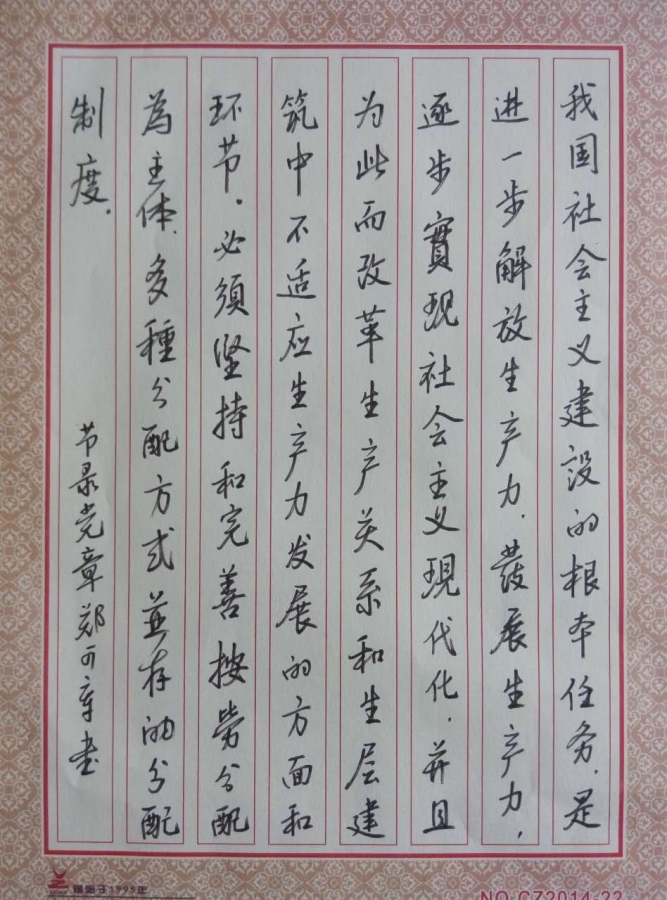 我国社会主义建设的根本任务，是
进一步解放生产力，發展生产力，
逐步實现社会主义現代化，并且
为此而改革生产关系和生层建
筑中不适应生产力发展的方面和
环节。必须坚持和完善按劳分配
為主体，多種分配方式並存的分配
制度。
节录党章郑可章书
1995年
NO:CZ2014-22